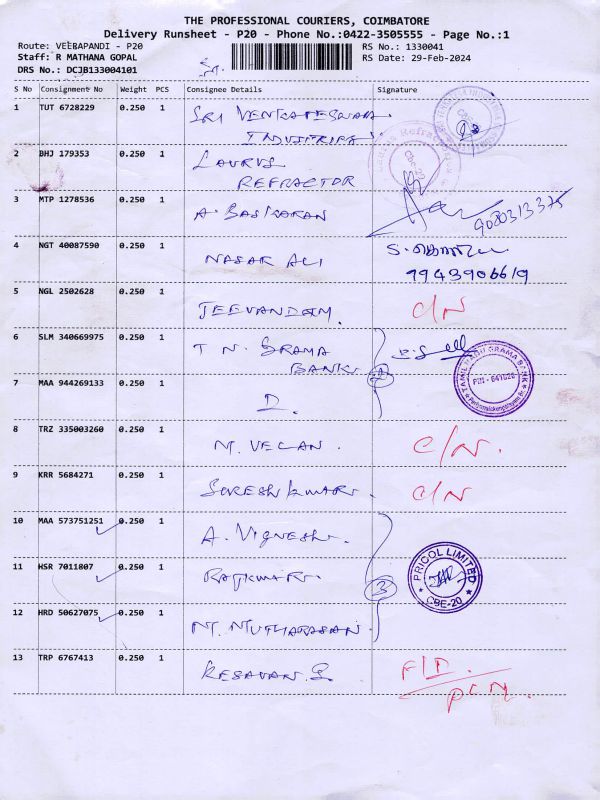 THE PROFESSIONAL COURIERS, COIMBATORE
Delivery Runsheet - P20 - Phone No.:0422-3505555 - Page No.:1
Route: VEERAPANDI - P20
RS No.: 1330041
Staff: R MATHANA GOPAL
RS Date: 29-Feb-2024
DRS No.: DCJB133004101
S No Consignment No Weight PCS Consignee Details Signature
1 TUT 6728229 0.250 1 SRI VENKATESWARA
INDUSTRIES
2 BHJ 179353 0.250 1 LAURUS
REFRACTOR
3 MTP 1278536 0.250 1 A. BASKARAN 9080313375
4 NGT 40087590 0.250 1 NASAR ALI
7943906619
5 NGL 2502628 0.250 1 JEEVANDAM. C/N
6 SLM 340669975 0.250 1 T N GRAMA
BANK 2
TAMIL NADU GRAMA BANK
7 MAA 944269133 0.250 1 D.
8 TRZ 335003260 0.250 1 M. VELAN. C/N.
9 KRR 5684271 0.250 1 SURESH KUMAR. C/N
10 MAA 573751251 0.250 1 A. VIGNESH.
11 HSR 7011807 0.250 1 RAJKUMAR. 3
PRICOL LIMITED
CBE-20
12 HRD 50627075 0.250 1 M. MUTHARASAN
13 TRP 6767413 0.250 1 KESAVAN. S. F/D.
PCN.